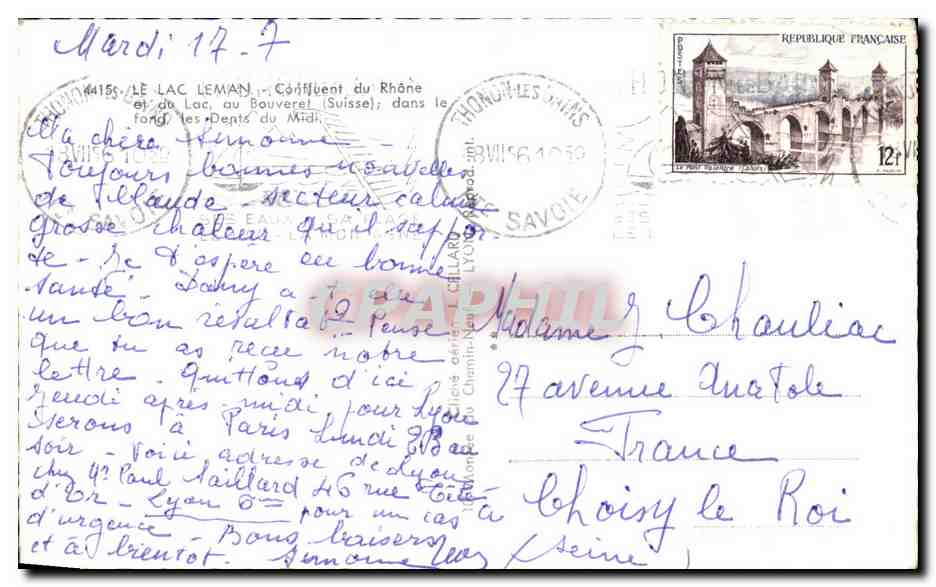 Mardi 17-7
44155 - LE LAC LEMAN - Confluent du Rhône
et du Lac, au Bouveret (Suisse); dans le
fond, les Dents du Midi.
Ma chère Simonne -
Toujours bonnes nouvelles
de Claude - secteur calme
grosse chaleur qu'il suppor-
te - Je t'espère en bonne
santé - Dany a-t-
un bon résultat? Pense
que tu as reçu notre
lettre. Quittons d'ici
jeudi après-midi pour Lyon
serons à Paris Lundi 23 au
soir - Voici adresse de Lyon
chez Mr Paul Vaillard 46 rue Tête
d'Or - Lyon 6ème pour un cas
d'urgence - Bons baisers
et à bientôt. Simone
Madame J. Chauliac
27 avenue Anatole
France
à Choisy le Roi
(Seine)
REPUBLIQUE FRANÇAISE
POSTES
LE PONT VALENTRE (CAHORS)
12F
THONON-LES-BAINS
18 VII 56 10 30
HTE SAVOIE
THONON-LES-BAINS
18 VII 56 10 30
HTE SAVOIE
SES EAUX - SA PLAGE
Cliché aérien J. CELLARD
Montée du Chemin-Neuf - LYON
Reprod. int.
CPAPHIL